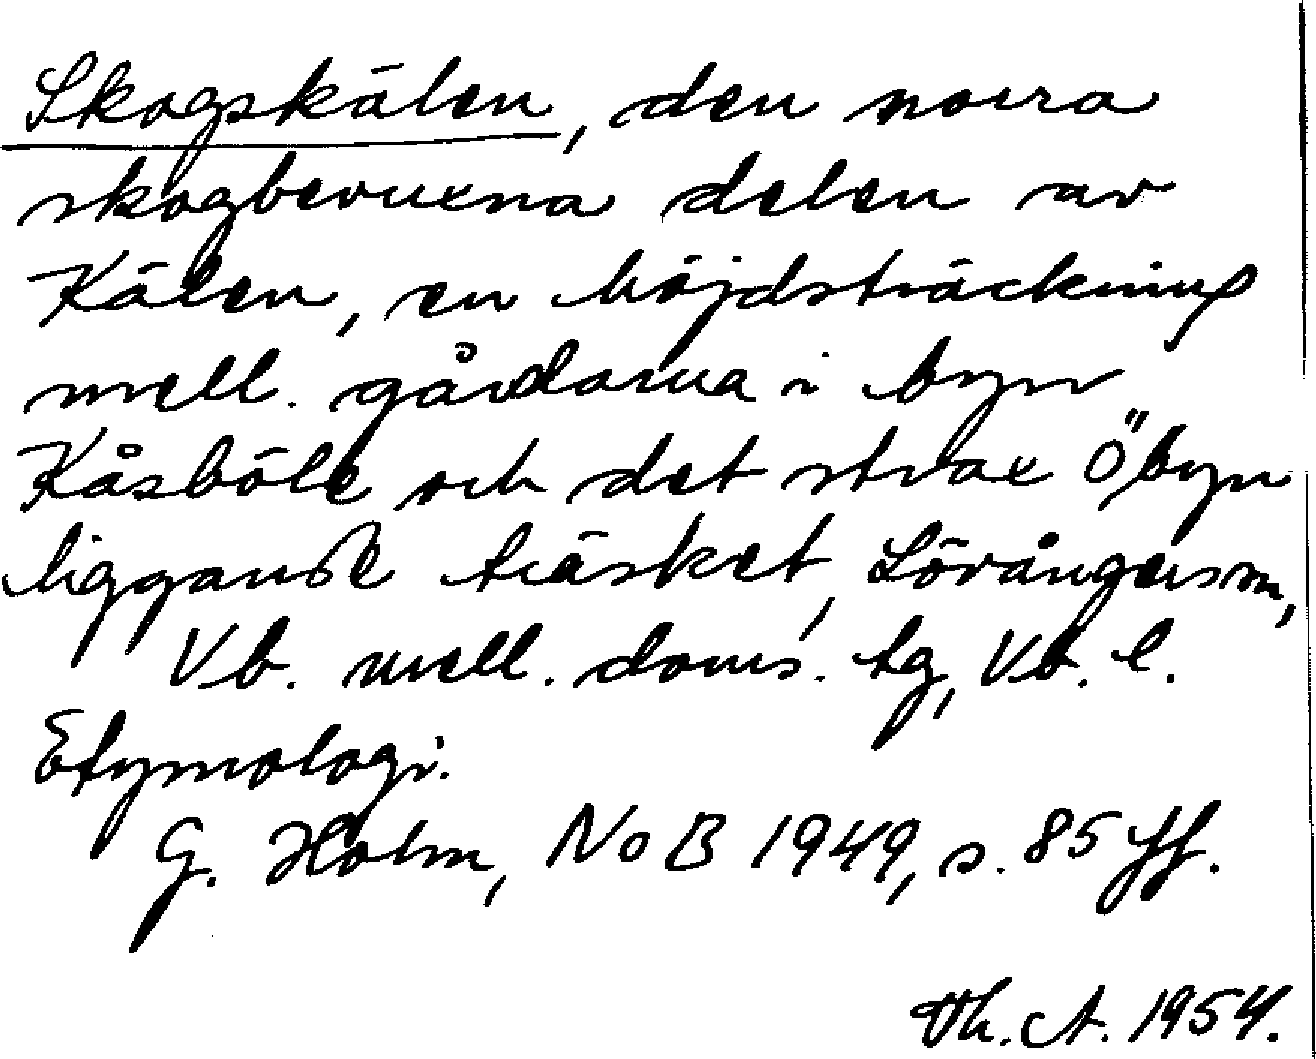 Skogskälen, den norra
skogbevuxna delen av
Kälen, en höjdsträckning
mell. gårdarna i byn
Kåsböle och det strax Ö byn
liggande träsket, Lövångers sn,
Vb. mell. doms. tg, Vb. l.
Etymologi.
G. Holm, NoB 1949, s. 85 ff.
Th. A. 1954.